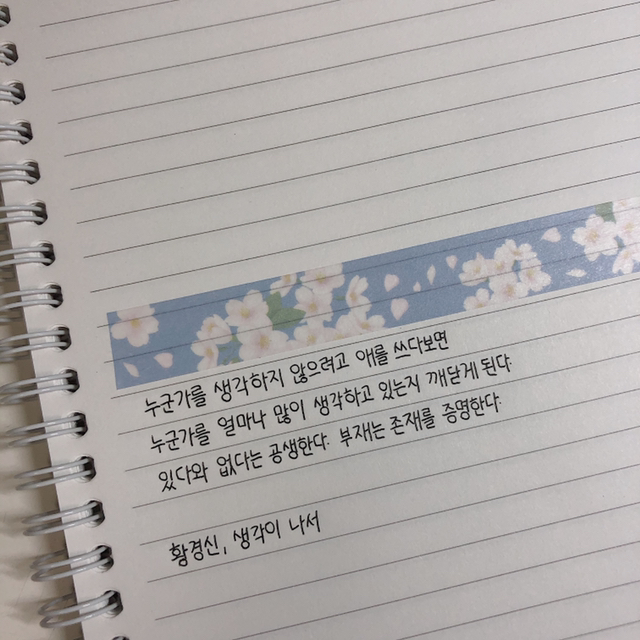 누군가를 생각하지 않으려고 애를 쓰다보면
누군가를 얼마나 많이 생각하고 있는지 깨닫게 된다
있다와 없다는 공생한다. 부재는 존재를 증명한다.
황경신, 생각이 나서